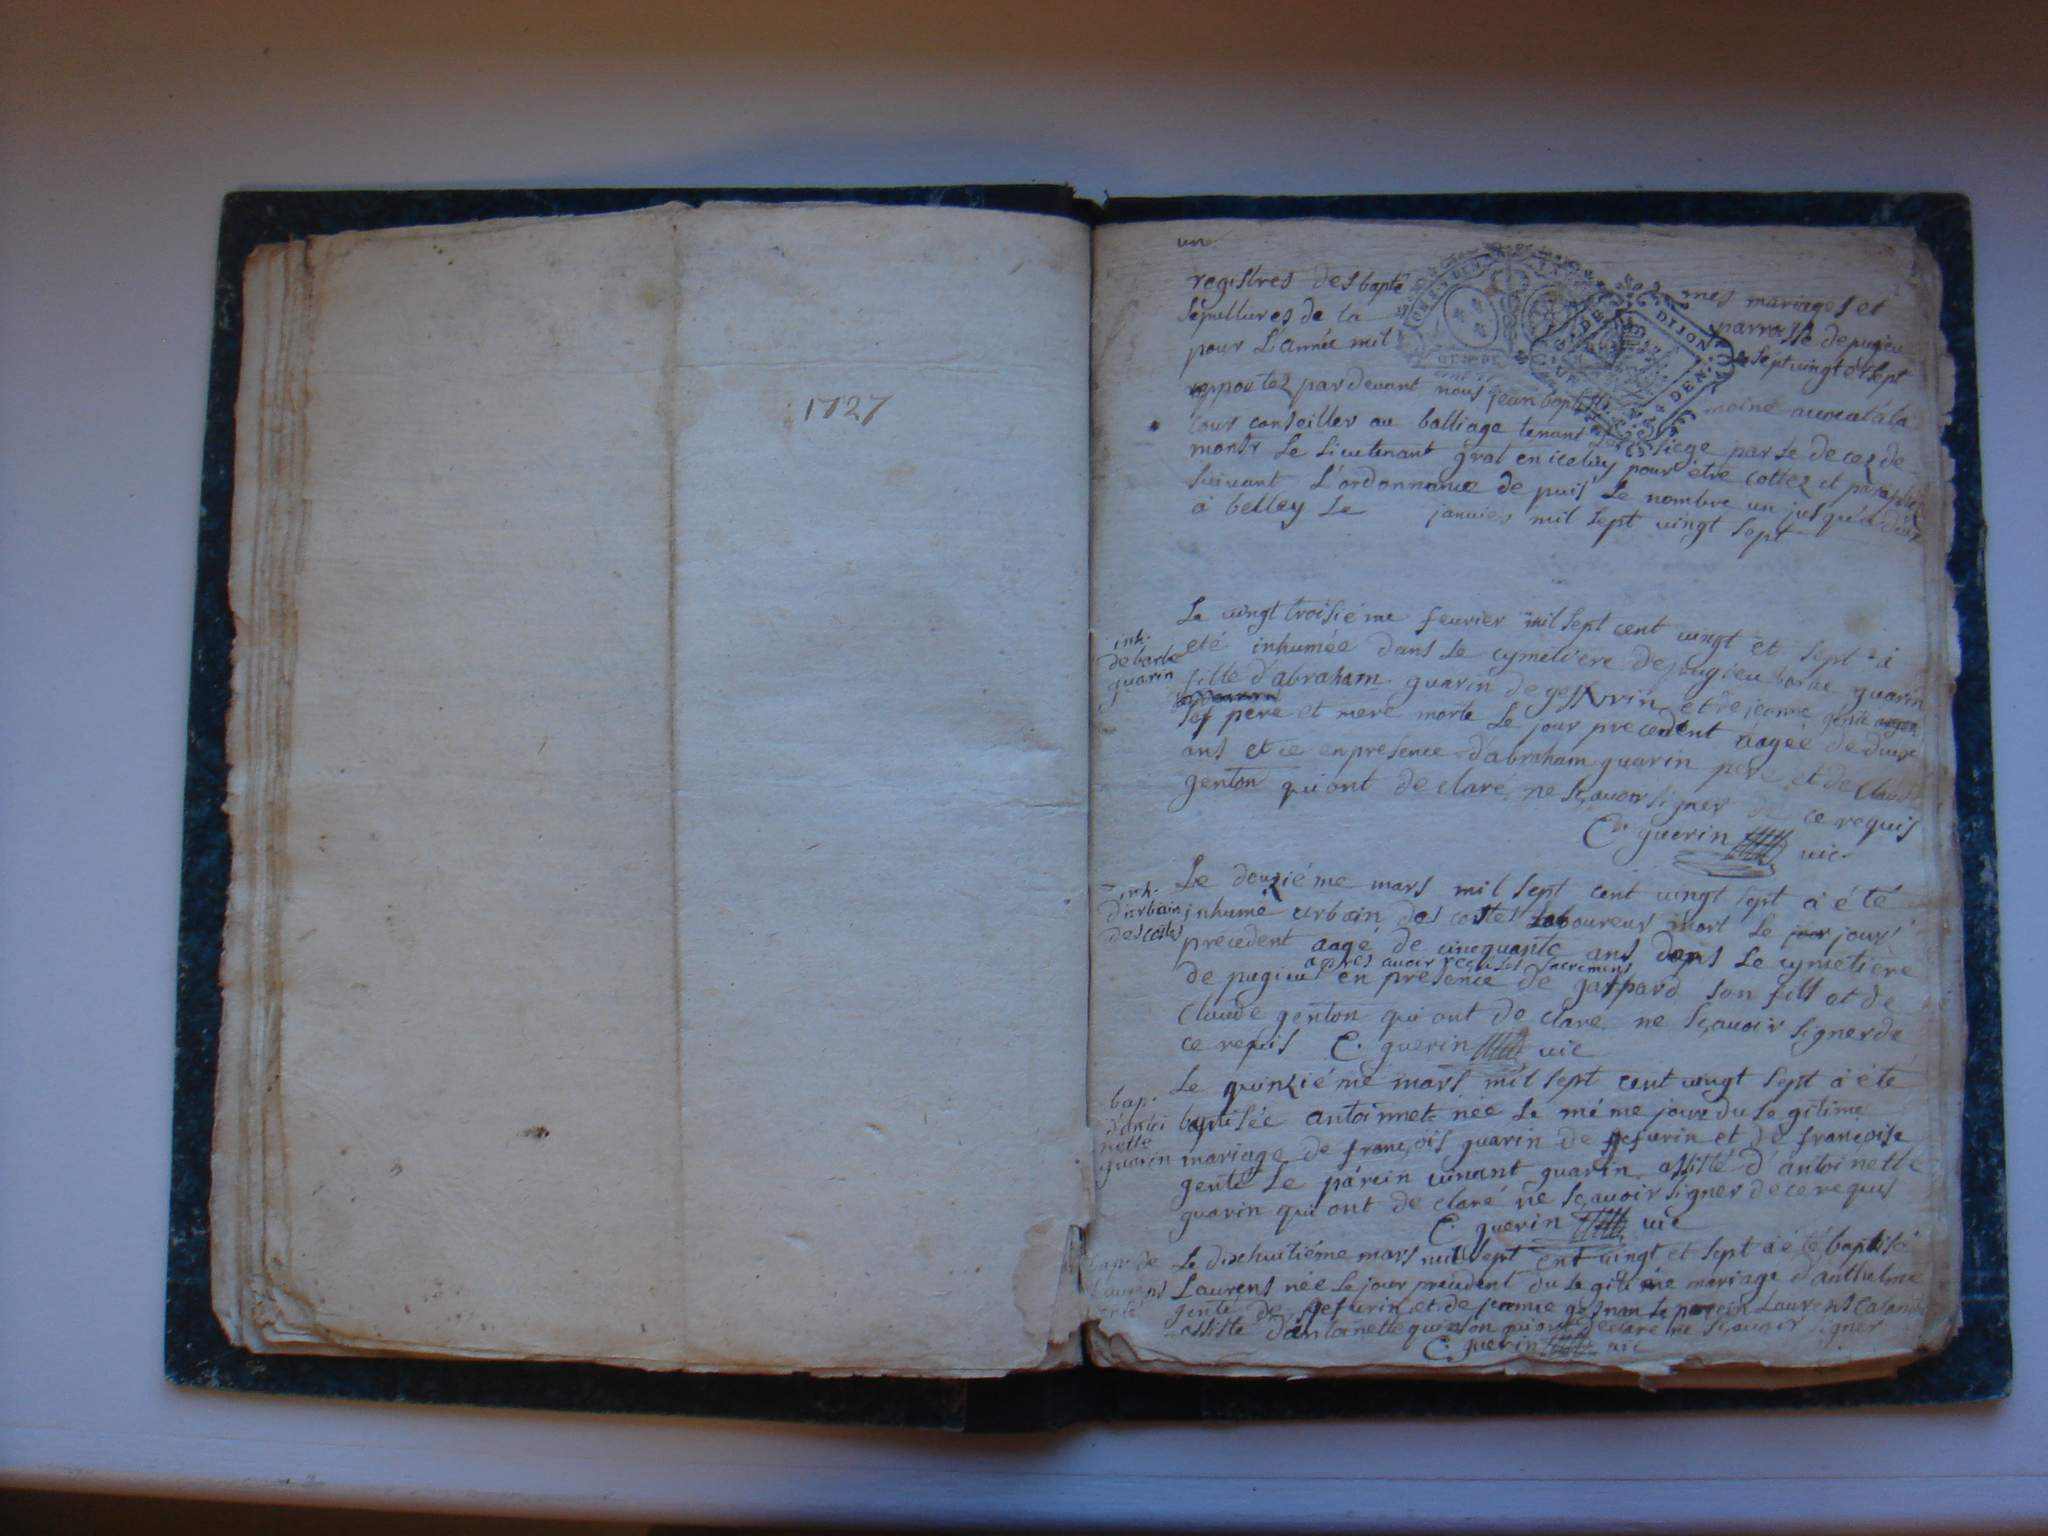 1727
un
registres des baptê mes mariages et
sepultures de la parroisse de pugieu
pour l'année mil sept vingt et sept
rapportez pardevant nous jean bapt moine avocat à la
cour conseiller au balliage tenant le siege par le decez de
monsr le lieutenant gral en iceluy pour être cottez et paraphez
suivant l'ordonnance depuis le nombre un jusqu'à deux
à belley le janvier mil sept vingt sept
DIJON
DEN
inh.
de barbe
guarin
Le vingt troisiéme fevrier mil sept cent vingt et sept à
eté inhumée dans le cymetiere de pugieu barbe guarin
fille d'abraham guarin de gessurin et de jeanne
ses pere et mere morte le jour precedent aagée de
ans et ce en presence d'abraham guarin pere et de claude
genton qui ont declaré ne sçavoir signer de ce requis
C. guerin vic.
inh.
d'urbain
des costes
Le deuziéme mars mil sept cent vingt sept à été
inhumé urbain des costes laboureur mort le jour
precedent aagé de cincquante ans dans le cymetiere
après avoir reçu les sacremens
de pugieu en presence de gaspard son fils et de
claude genton qui ont declaré ne sçavoir signer de
ce requis C. guerin vic
bap.
d'antoi
nette
guarin
Le quinziéme mars mil sept cent vingt sept à été
baptisée antoinette née le méme jour du legitime
mariage de françois guarin de gesurin et de françoise
gente le parein vincent guarin assisté d'antoinette
guarin qui ont declaré ne sçavoir signer de ce requis
C. guerin vic
bap. de
Laurens
gente
Le dixhuitiéme mars mil sept cent vingt et sept à été baptisé
Laurens née le jour precedent du legitime mariage d'anthelme
gente de gesurin et de jeanne le parein Laurens
assisté d'antoinette qui ont declaré ne sçavoir signer
C. guerin vic